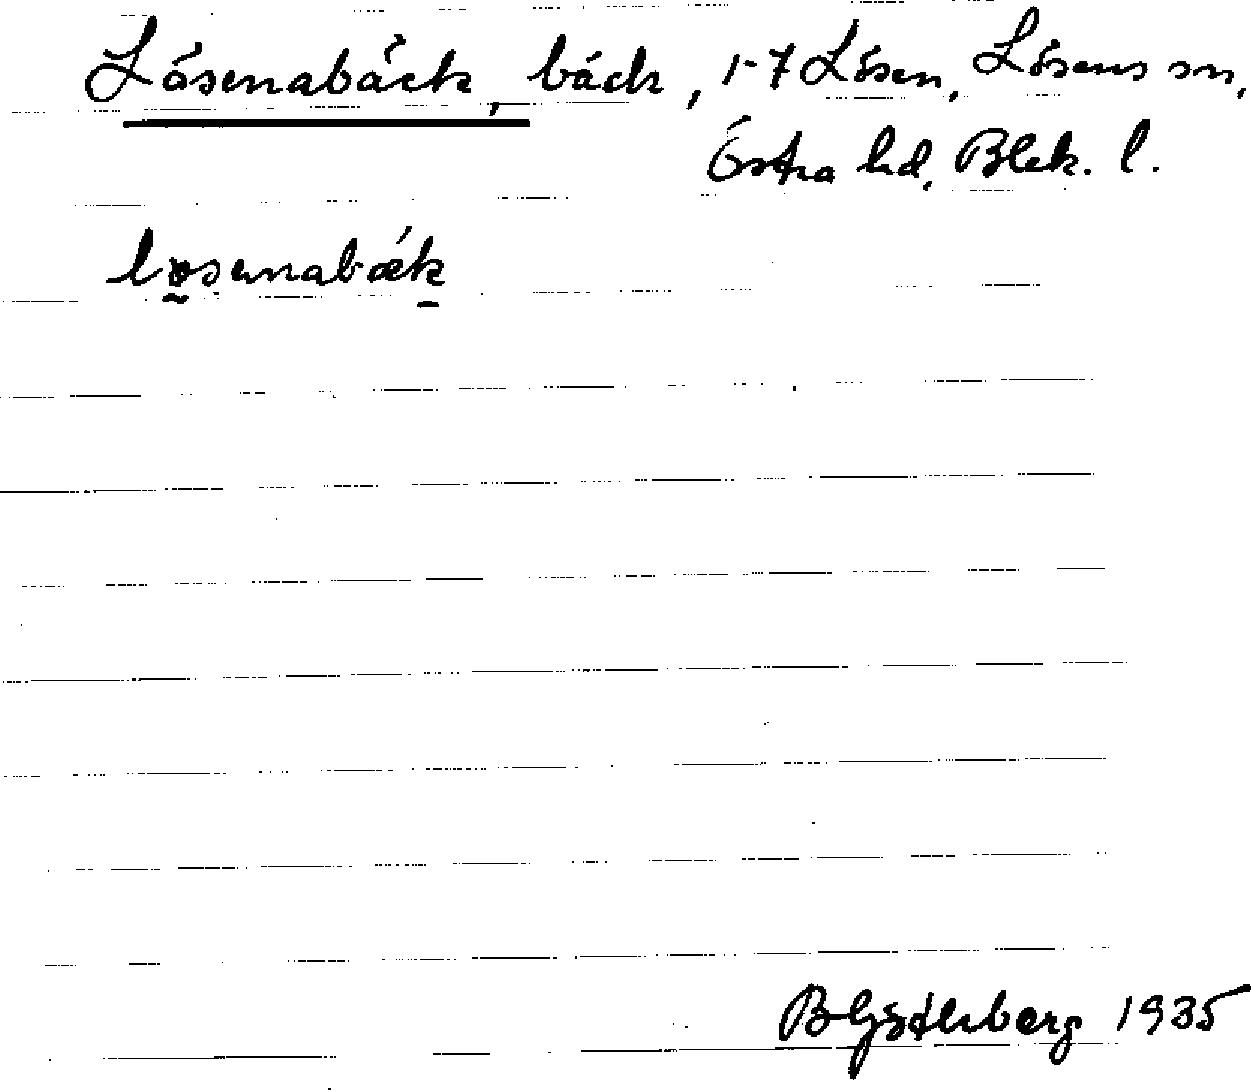 Lösenabäck, bäck, 1-7 Lösen, Lösens sn,
Östra hd, Blek. l.
løsenabæk
1935